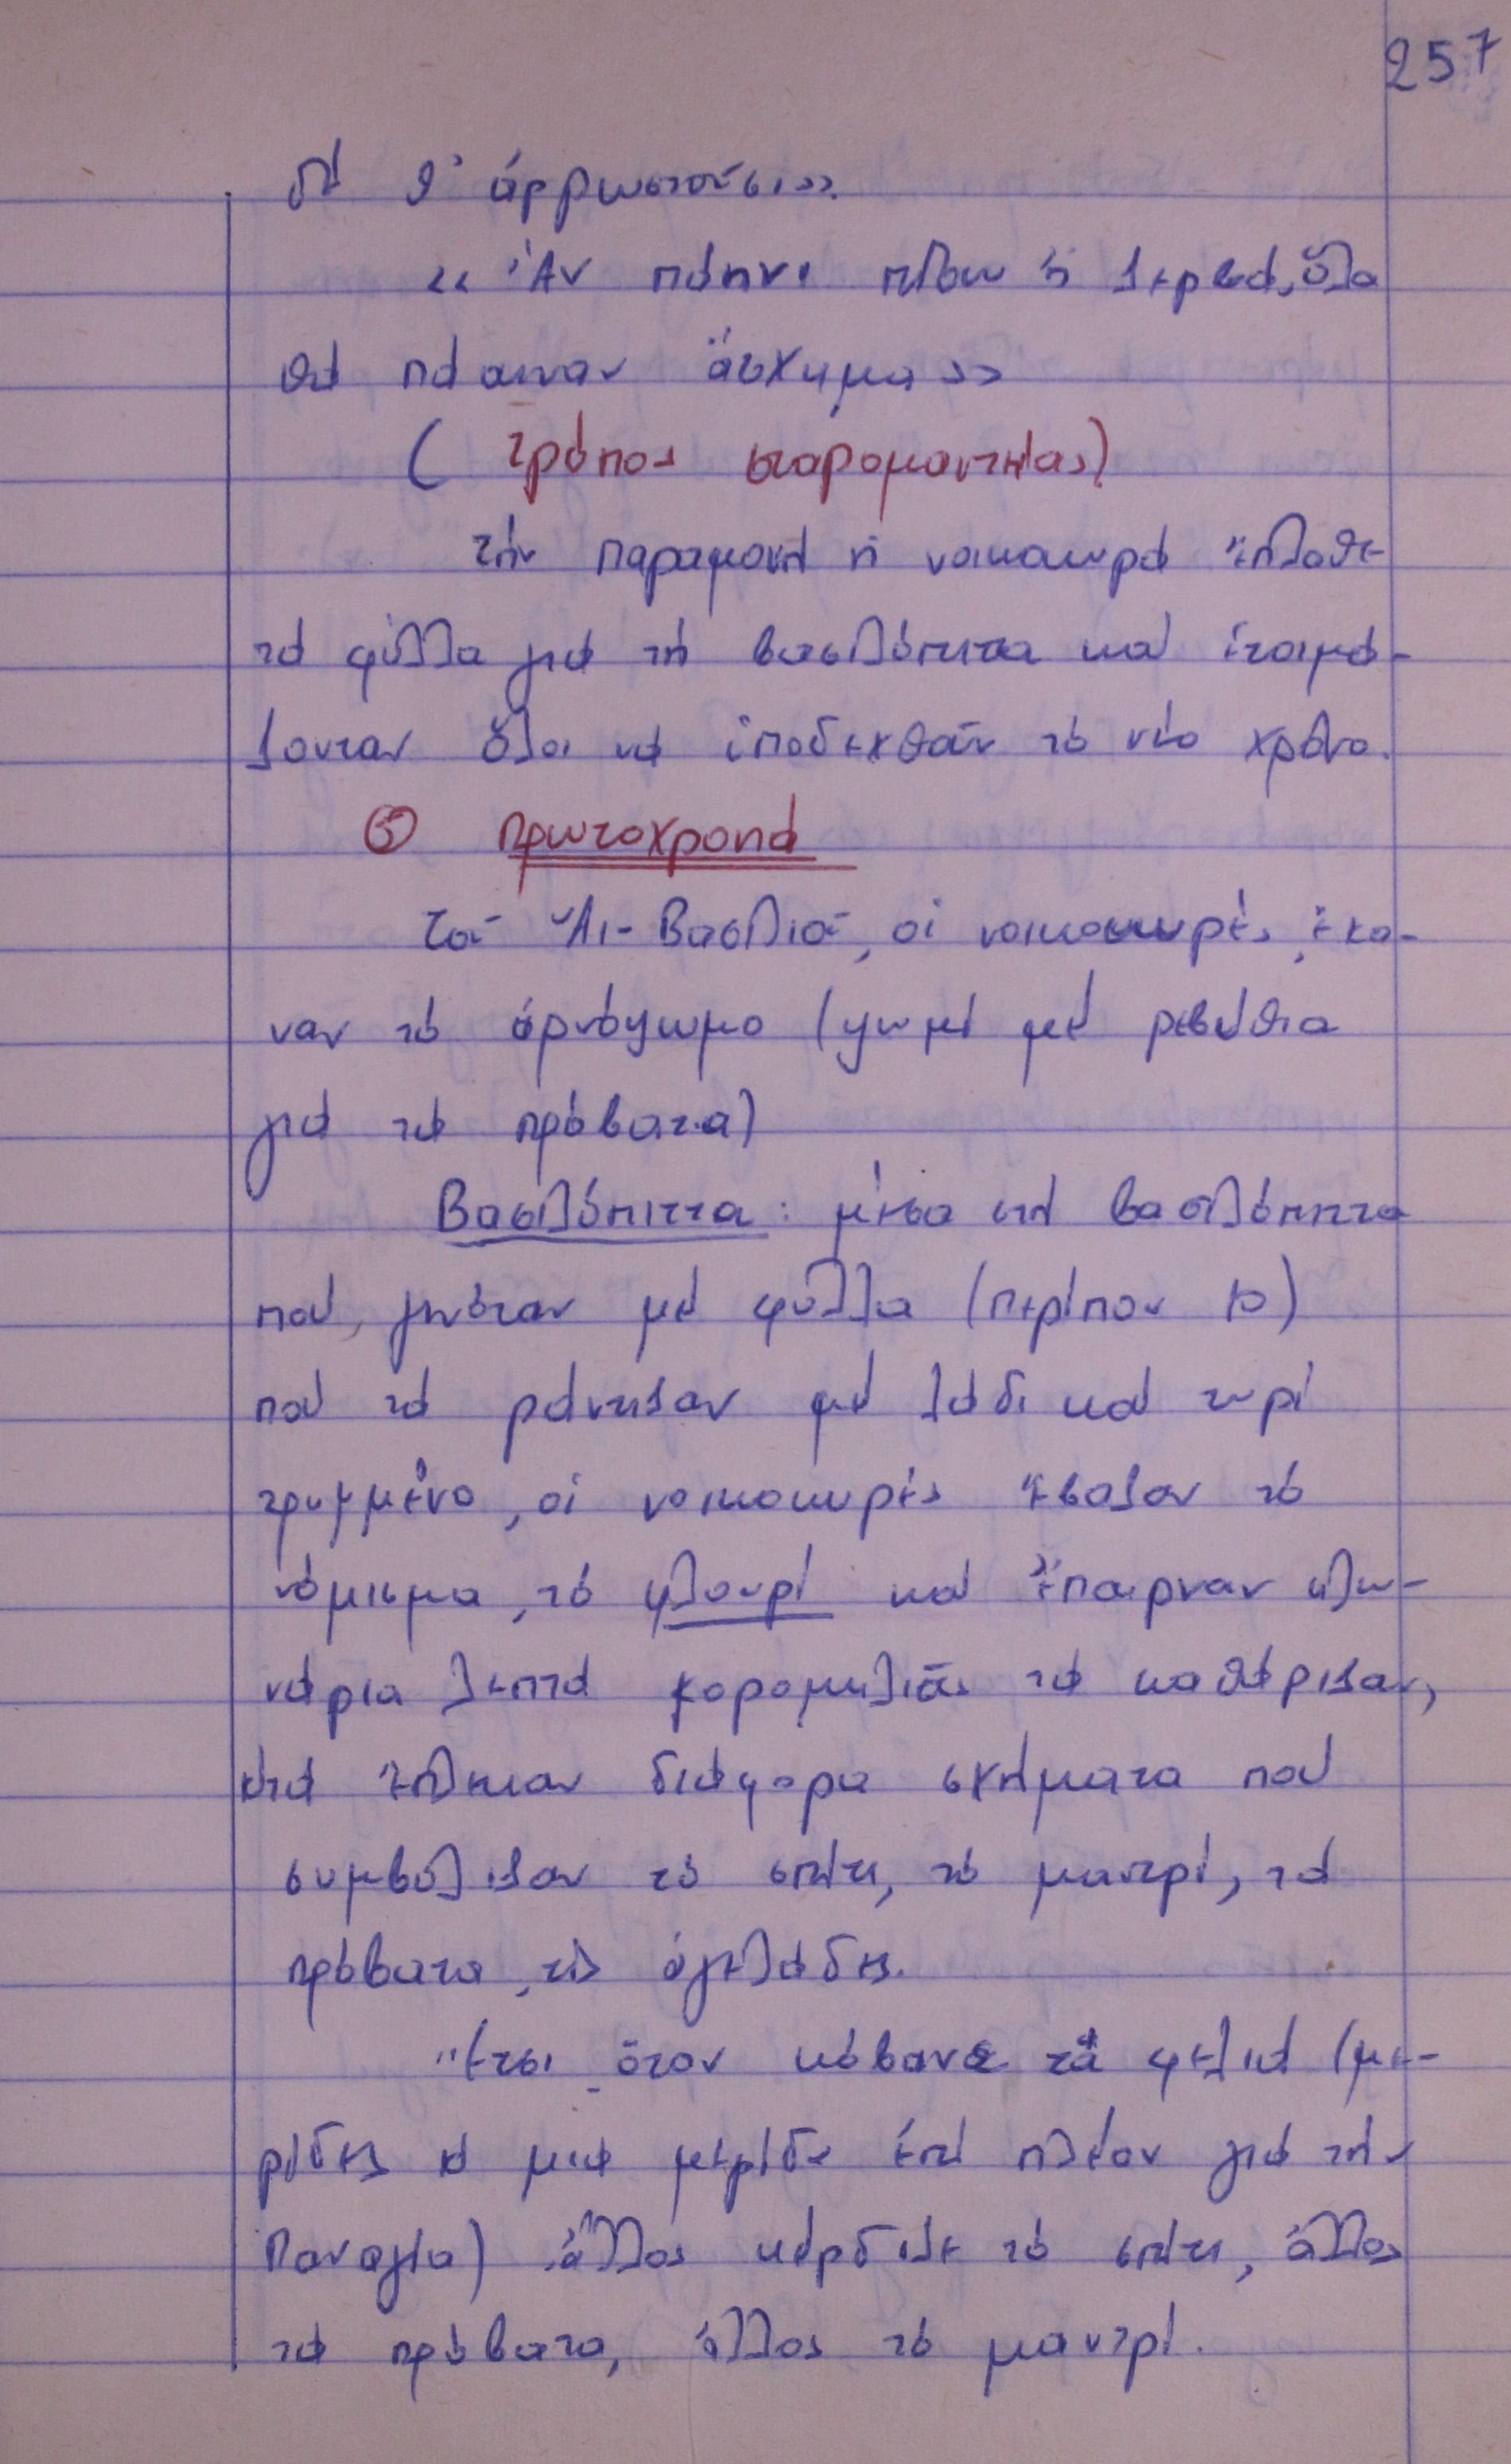 257
δέ θ' ἀρρωστοῦσι»
«Ἄν πάηνε πίσω ἡ ζερβά, ὅλα
θά πάαιναν ἄσχημα»
(τρόπος σπαρομαντείας)
τήν παραμονή ἡ νοικοκυρά ἔπλαθε
τά φύλλα γιά τή βασιλόπιττα καί ἑτοιμά-
ζονταν ὅλοι νά ὑποδεχθοῦν τό νέο χρόνο.
⑤ Πρωτοχρονιά
Τοῦ Ἅι-Βασιλιοῦ, οἱ νοικοκυρές, ἔκα-
ναν τό ἀρνόψωμο (ψωμί μέ ρεβύθια
γιά τά πρόβατα)
Βασιλόπιττα: μέσα στή βασιλόπιττα
πού γινόταν μέ φύλλα (περίπου 10)
πού τά ράντιζαν μέ λάδι καί τυρί
τριμμένο, οἱ νοικοκυρές ἔβαζαν τό
νόμισμα, τό φλουρί καί ἔπαιρναν κλω-
νάρια λεπτά κορομηλιᾶς τά καθάριζαν,
κι ἔπλεκαν διάφορα σχήματα πού
συμβόλιζαν τό σπίτι, τό μαντρί, τά
πρόβατα, τίς ἀγελάδες.
Ἔτσι ὅταν κόβανε τά φελιά (με-
ρίδες κι μιά μερίδα ἐπί πλέον γιά τήν
Παναγία) ἄλλος κέρδιζε τό σπίτι, ἄλλος
τά πρόβατα, ἄλλος τό μαντρί.